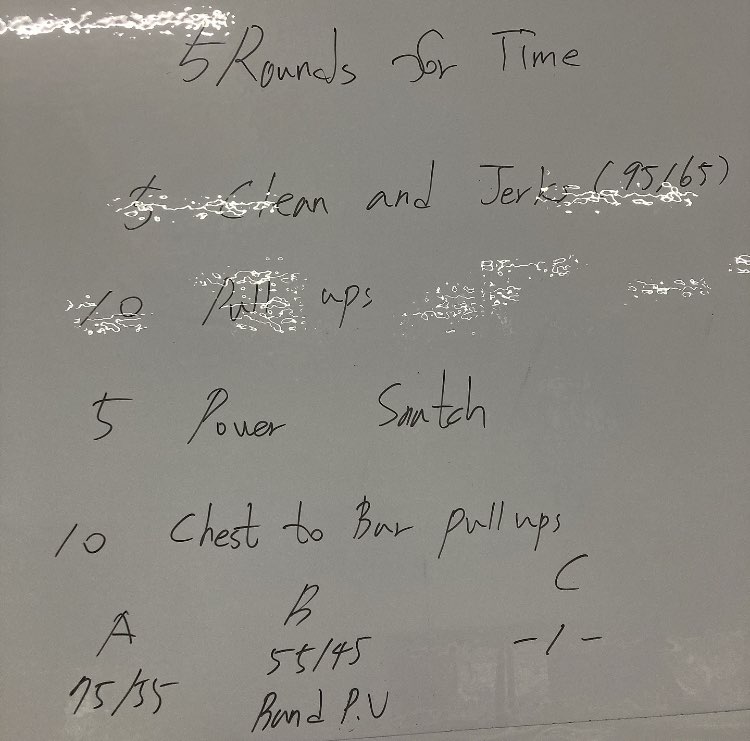 5 Rounds for Time
5 Clean and Jerks (95/65)
10 Pull ups
5 Power Snatch
10 Chest to Bar pull ups
A B C
75/55 55/45 -/-
Band P.U